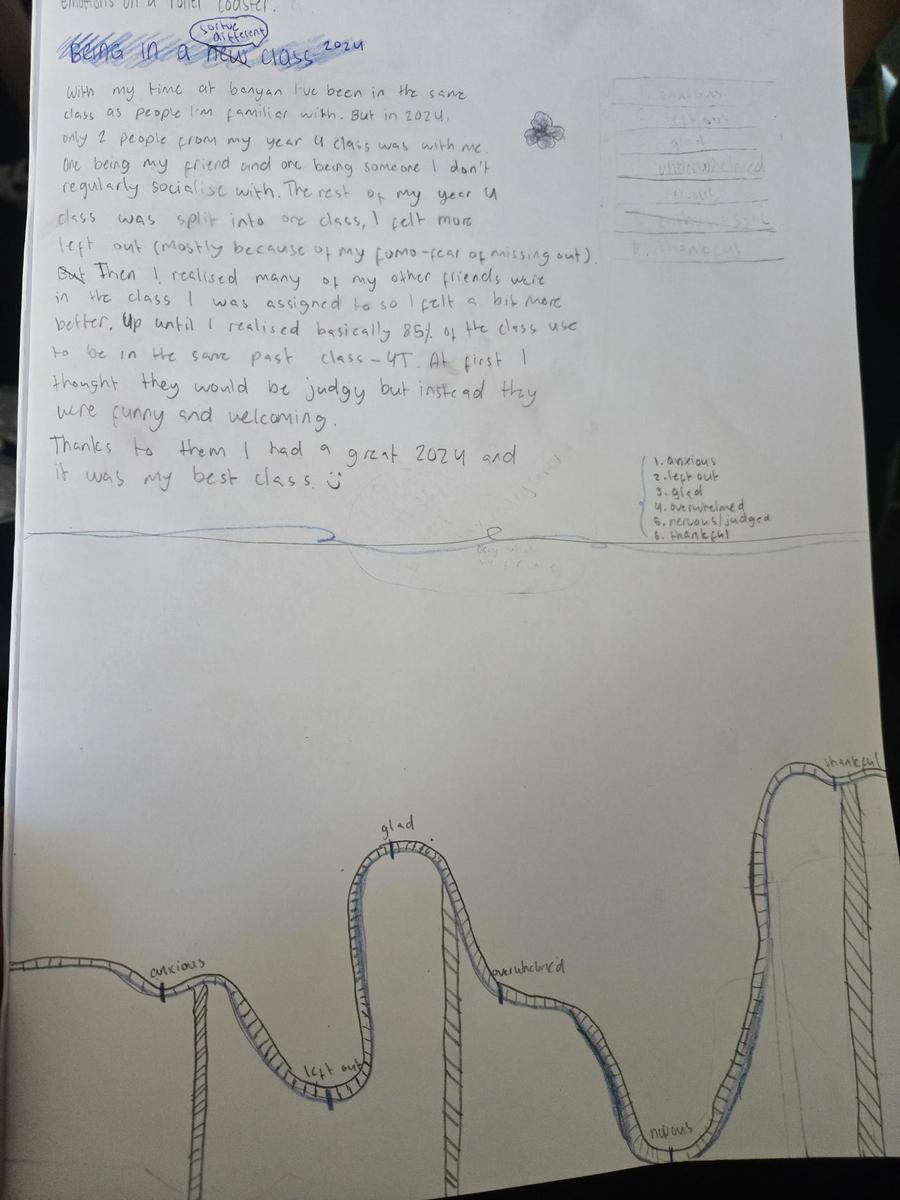 emotions on a roller coaster.
sortve different
Being in a new class 2024
With my time at banyan I've been in the same
class as people I'm familiar with. But in 2024,
only 2 people from my year 4 class was with me.
One being my friend and one being someone I don't
regularly socialise with. The rest of my year 4
class was split into one class, I felt more
left out (mostly because of my fomo-fear of missing out).
But Then I realised many of my other friends were
in the class I was assigned to so I felt a bit more
better. Up until I realised basically 85% of the class use
to be in the same past class - 4T. At first I
thought they would be judgy but instead they
were funny and welcoming.
Thanks to them I had a great 2024 and
it was my best class. :)
left out
glad
overwhelmed
nervous
6. thankful
1. anxious
2. left out
3. glad
4. overwhelmed
5. nervous/judged
6. thankful
thankful
glad
anxious
overwhelmed
left out
nervous